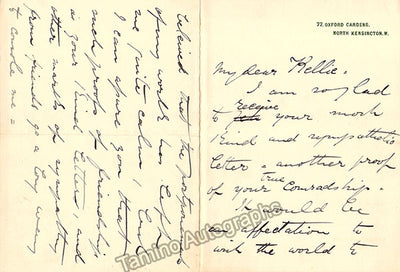 77, OXFORD GARDENS,
NORTH KENSINGTON. W.
My dear Kellie.
I am so glad
to receive your most
kind and sympathetic
letter - another proof
of your true Comradeship.
It would be
an affectation to
wish the world to
believe that the postponement
of my work has left
me quite calm, but
I can assure you that
such proofs of friendship
as your kind letter, and
other marks of sympathy
from friends go a long way
to console me =
Tamino Autographs